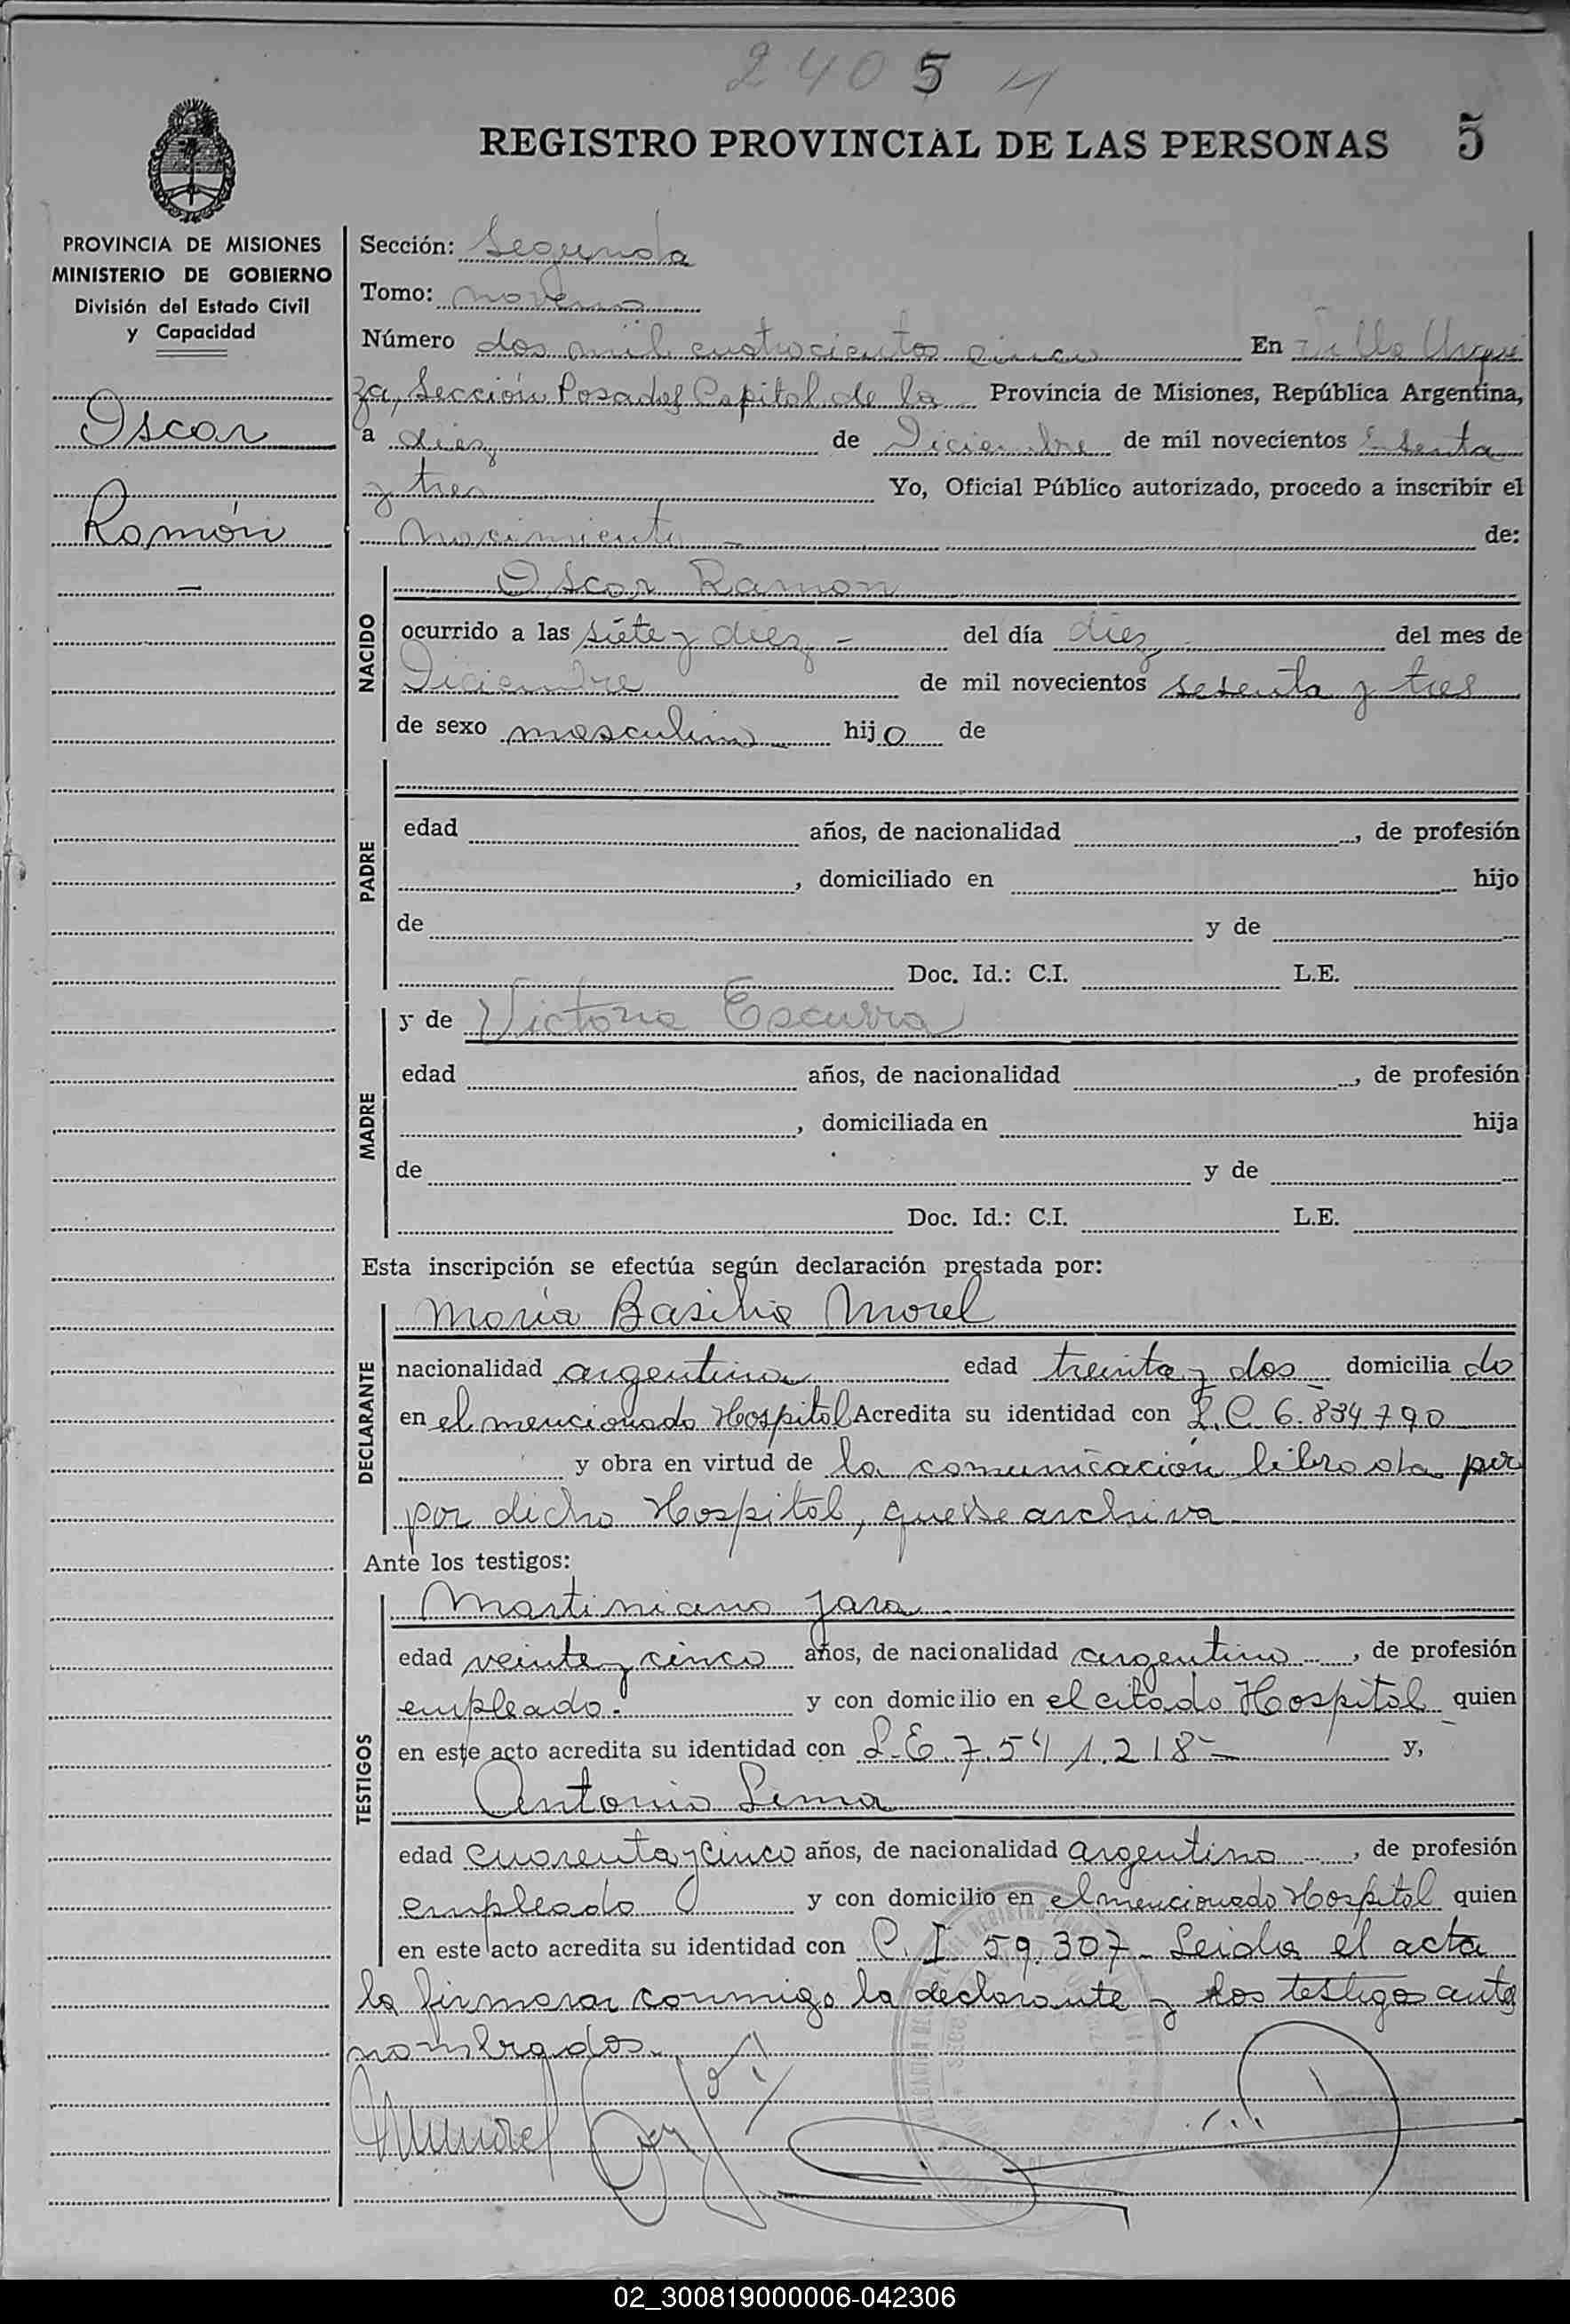 2405
REGISTRO PROVINCIAL DE LAS PERSONAS 5
PROVINCIA DE MISIONES
MINISTERIO DE GOBIERNO
División del Estado Civil
y Capacidad
Oscar
Ramón
Sección: Segunda
Tomo: noveno
Número dos mil cuatrocientos cinco En Villa Urqui
za, Sección Posadas Capital de la Provincia de Misiones, República Argentina,
a diez de Diciembre de mil novecientos sesenta
y tres Yo, Oficial Público autorizado, procedo a inscribir el
nacimiento - de:
NACIDO
Oscar Ramon
ocurrido a las siete y diez - del día diez - del mes de
Diciembre de mil novecientos sesenta y tres
de sexo masculino hijo de
PADRE
edad años, de nacionalidad , de profesión
, domiciliado en hijo
de y de
Doc. Id.: C.I. L.E.
MADRE
y de Victoria Escurra
edad años, de nacionalidad , de profesión
, domiciliada en hija
de y de
Doc. Id.: C.I. L.E.
Esta inscripción se efectúa según declaración prestada por:
DECLARANTE
María Basilia Morel
nacionalidad argentina edad treinta y dos domicilia do
en el mencionado Hospital Acredita su identidad con L.C 6.834.790
y obra en virtud de la comunicación librada por
por dicho Hospital, que se archiva
Ante los testigos:
TESTIGOS
Martiniano Jara
edad veinte y cinco años, de nacionalidad argentino , de profesión
empleado. y con domicilio en el citado Hospital quien
en este acto acredita su identidad con L.E. 7.541.218- y,
Antonio Lema
edad cuarenta y cinco años, de nacionalidad argentino , de profesión
empleado y con domicilio en el mencionado Hospital quien
en este acto acredita su identidad con C. I 59.307- Leida el acta
la firmaran conmigo la declarante y los testigos ante
nombrados.
MMorel
02_300819000006-042306